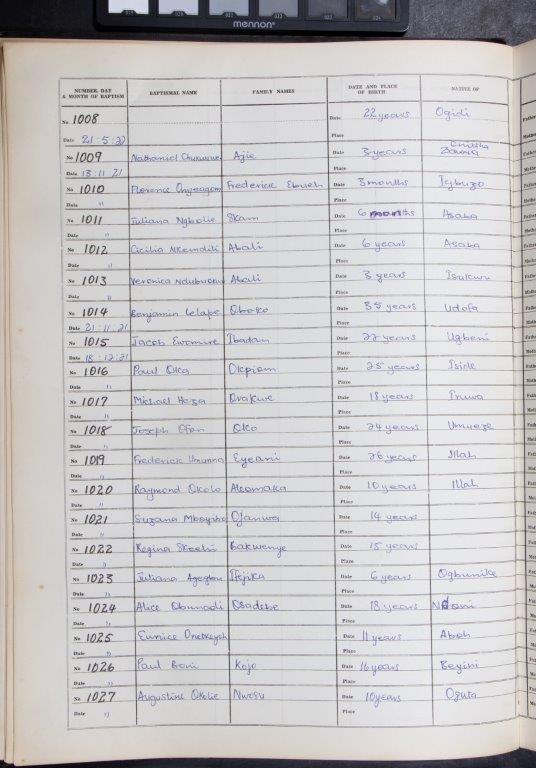 mennon
NUMBER, DAY & MONTH OF BAPTISM BAPTISMAL NAME FAMILY NAMES DATE AND PLACE OF BIRTH NATIVE OF
No. 1008 Date 22 years Ogidi
Date 21:5:20 Place
No 1009 Nathaniel Ajie Date 3 years Onitsha
Date 13:11 21 Place
No 1010 Florence Onyeagom Frederick Date 3 months Igbuzo
Date " Place
No 1011 Juliana Ngbolie Skam Date 6 months Asaba
Date " Place
No 1012 Cicilia Nkemdili Abali Date 6 years Asaba
Date " Place
No 1013 Veronica Abali Date 3 years Isukwu
Date " Place
No 1014 Benjamin Lelape Oboko Date 35 years Udofa
Date 21:11.21 Place
No 1015 Jacob Ibadan Date 22 years Ugbeni
Date 18:12:21 Place
No 1016 Paul Oka Okpiom Date 25 years Isiele
Date " Place
No 1017 Michael Date 18 years
Date " Place
No 1018 Joseph Ofon Oko Date 24 years Umueze
Date " Place
No 1019 Frederick Umunna Eyeani Date 26 years Illah
Date " Place
No 1020 Raymond Okolo Akomaka Date 10 years Illah
Date " Place
No 1021 Suzana Ojanwa Date 14 years
Date " Place
No 1022 Regina Bakwenye Date 15 years
Date " Place
No 1023 Juliana Agegbu Ifejika Date 6 years Ogbunike
Date " Place
No 1024 Alice Obunadi Osadebe Date 18 years Ndoni
Date " Place
No 1025 Eunice Date 11 years Aboh
Date " Place
No 1026 Paul Boni Kojo Date 16 years Beyini
Date " Place
No 1027 Augustine Okolie Nwosu Date 10 years Oguta
Date " Place